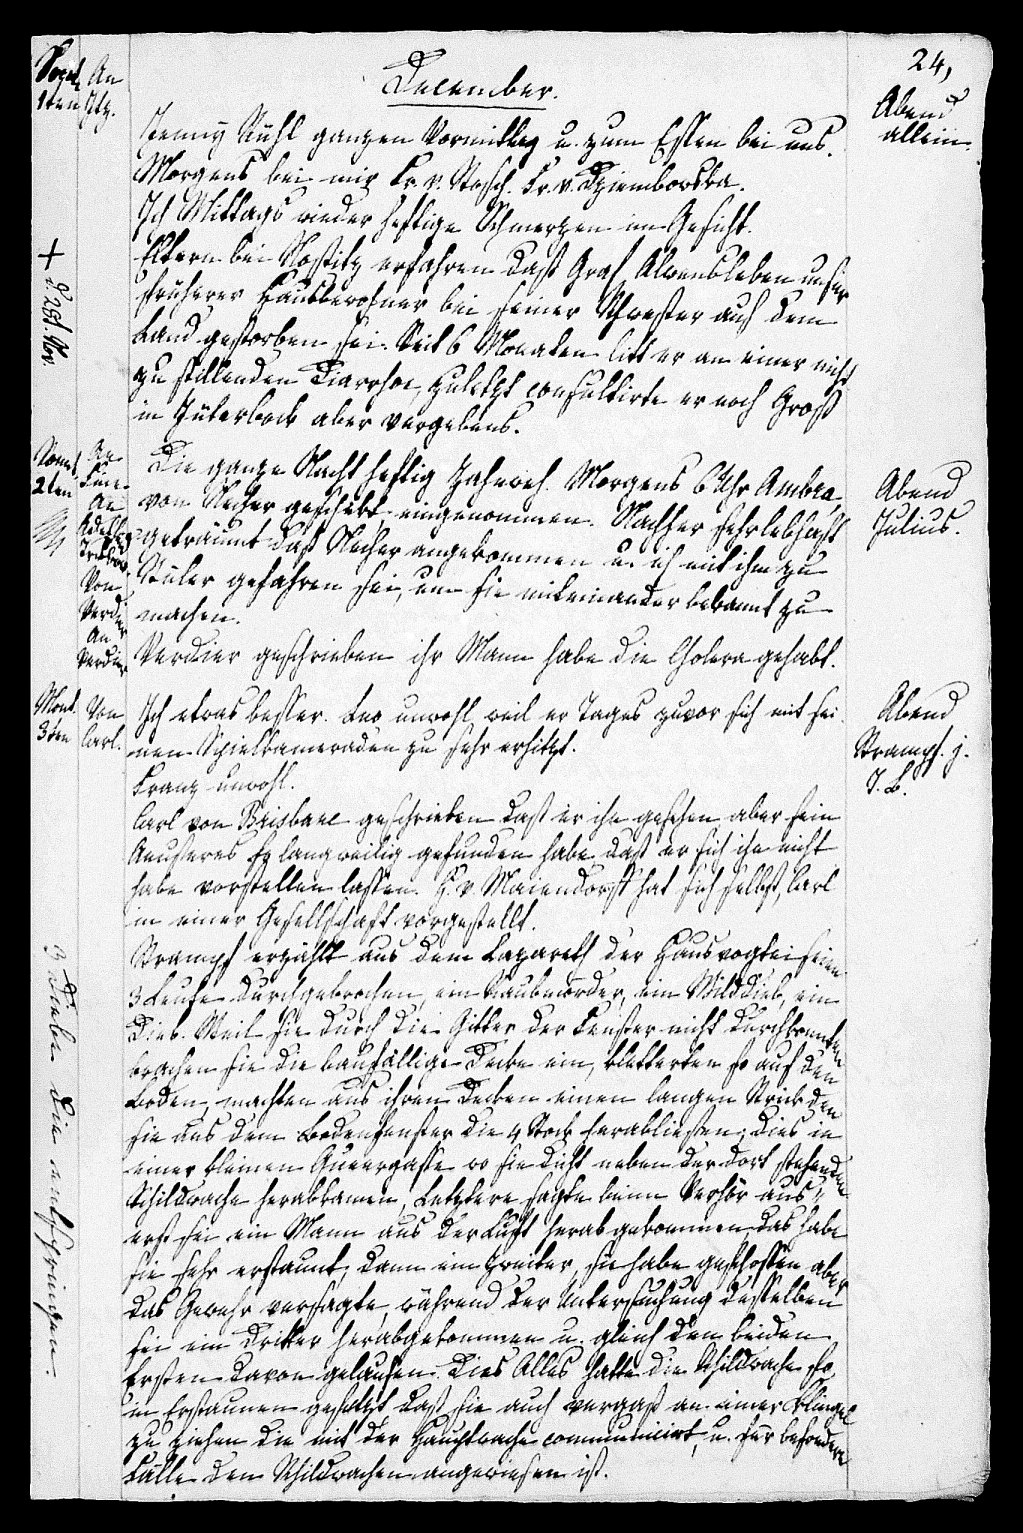 24,
December.
Sonnab. An
1ten Itz.
Jenny Rühl ganzen Vormittag u. zum Essen bei uns.
Abend
allein.
Morgens bei mir Fr. v. Stosch. Fr. v. Dziemborska.
Ich Mittags wieder heftige Schmerzen im Gesicht.
Eltern bei Nostitz erfahren daß Graf Alvensleben unser
früherer Hausbewohner bei seiner Schwester auf dem
Land gestorben sei. Seit 6 Monaten litt er an einer nicht
zu stillenden Diarrhoe, zuletzt consultirte er noch Groß
in Jüterbock aber vergebens.
+ d. 29t. Nov.
Sonnt.
2ten
An
An
Von
Verdier
An
Verdier
Die ganze Nacht heftig Zahnweh. Morgens 6 Uhr Ambra,
von Necher geschickt eingenommen. Nachher sehr lebhaft
geträumt daß Necher angekommen u. ich mit ihm zu
Stüler gefahren sei, um sie miteinander bekannt zu
machen.
Verdier geschrieben ihr Mann habe die Cholera gehabt.
Abend
Julius.
Mont.
3ten
Von
Carl.
Ich etwas besser. Leo unwohl, weil er Tages zuvor sich mit sei-
nen Spielkameraden zu sehr erhitzt.
Franz unwohl.
Abend
Strampf. j.
J. B.
Carl von Brisbane geschrieben daß er ihn gesehen aber sein
Aeußeres so langweilig gefunden habe daß er sich ihm nicht
habe vorstellen lassen. H. v. Maiendorff hat sich selbst, Carl
in einer Gesellschaft vorgestellt.
Strampf erzählt aus dem Lazareth der Hausvogtei seien
3 Leute durchgebrochen, ein Raubmörder, ein Wilddieb, ein
Dieb. Weil sie durch die Gitter der Fenster nicht durchkonnten
brachen sie die baufällige Decke ein, kletterten so auf den
Boden, machten aus ihren Decken einen langen Strick den
sie aus dem Bodenfenster die 4 Stock herabließen; dies in
einer kleinen Queergasse wo sie dicht neben der dort stehenden
Schildwache herabkamen, Letztere sagte beim Verhör aus:
erst sei ein Mann aus der Luft herab gekommen, das habe
sie sehr erstaunt, dann ein Zweiter, sie habe geschossen aber
das Gewehr versagte, während der Untersuchung desselben
sei ein Dritter herabgekommen u. gleich den beiden
Ersten davon gelaufen. Dies Alles hatte die Schildwache so
in Erstaunen gesetzt daß sie auch vergaß an einer Klingel
zu ziehen die mit der Hauptwache communicirt, u. für besondere
Fälle den Schildwachen angewiesen ist.
3 Diebe die entspringen.